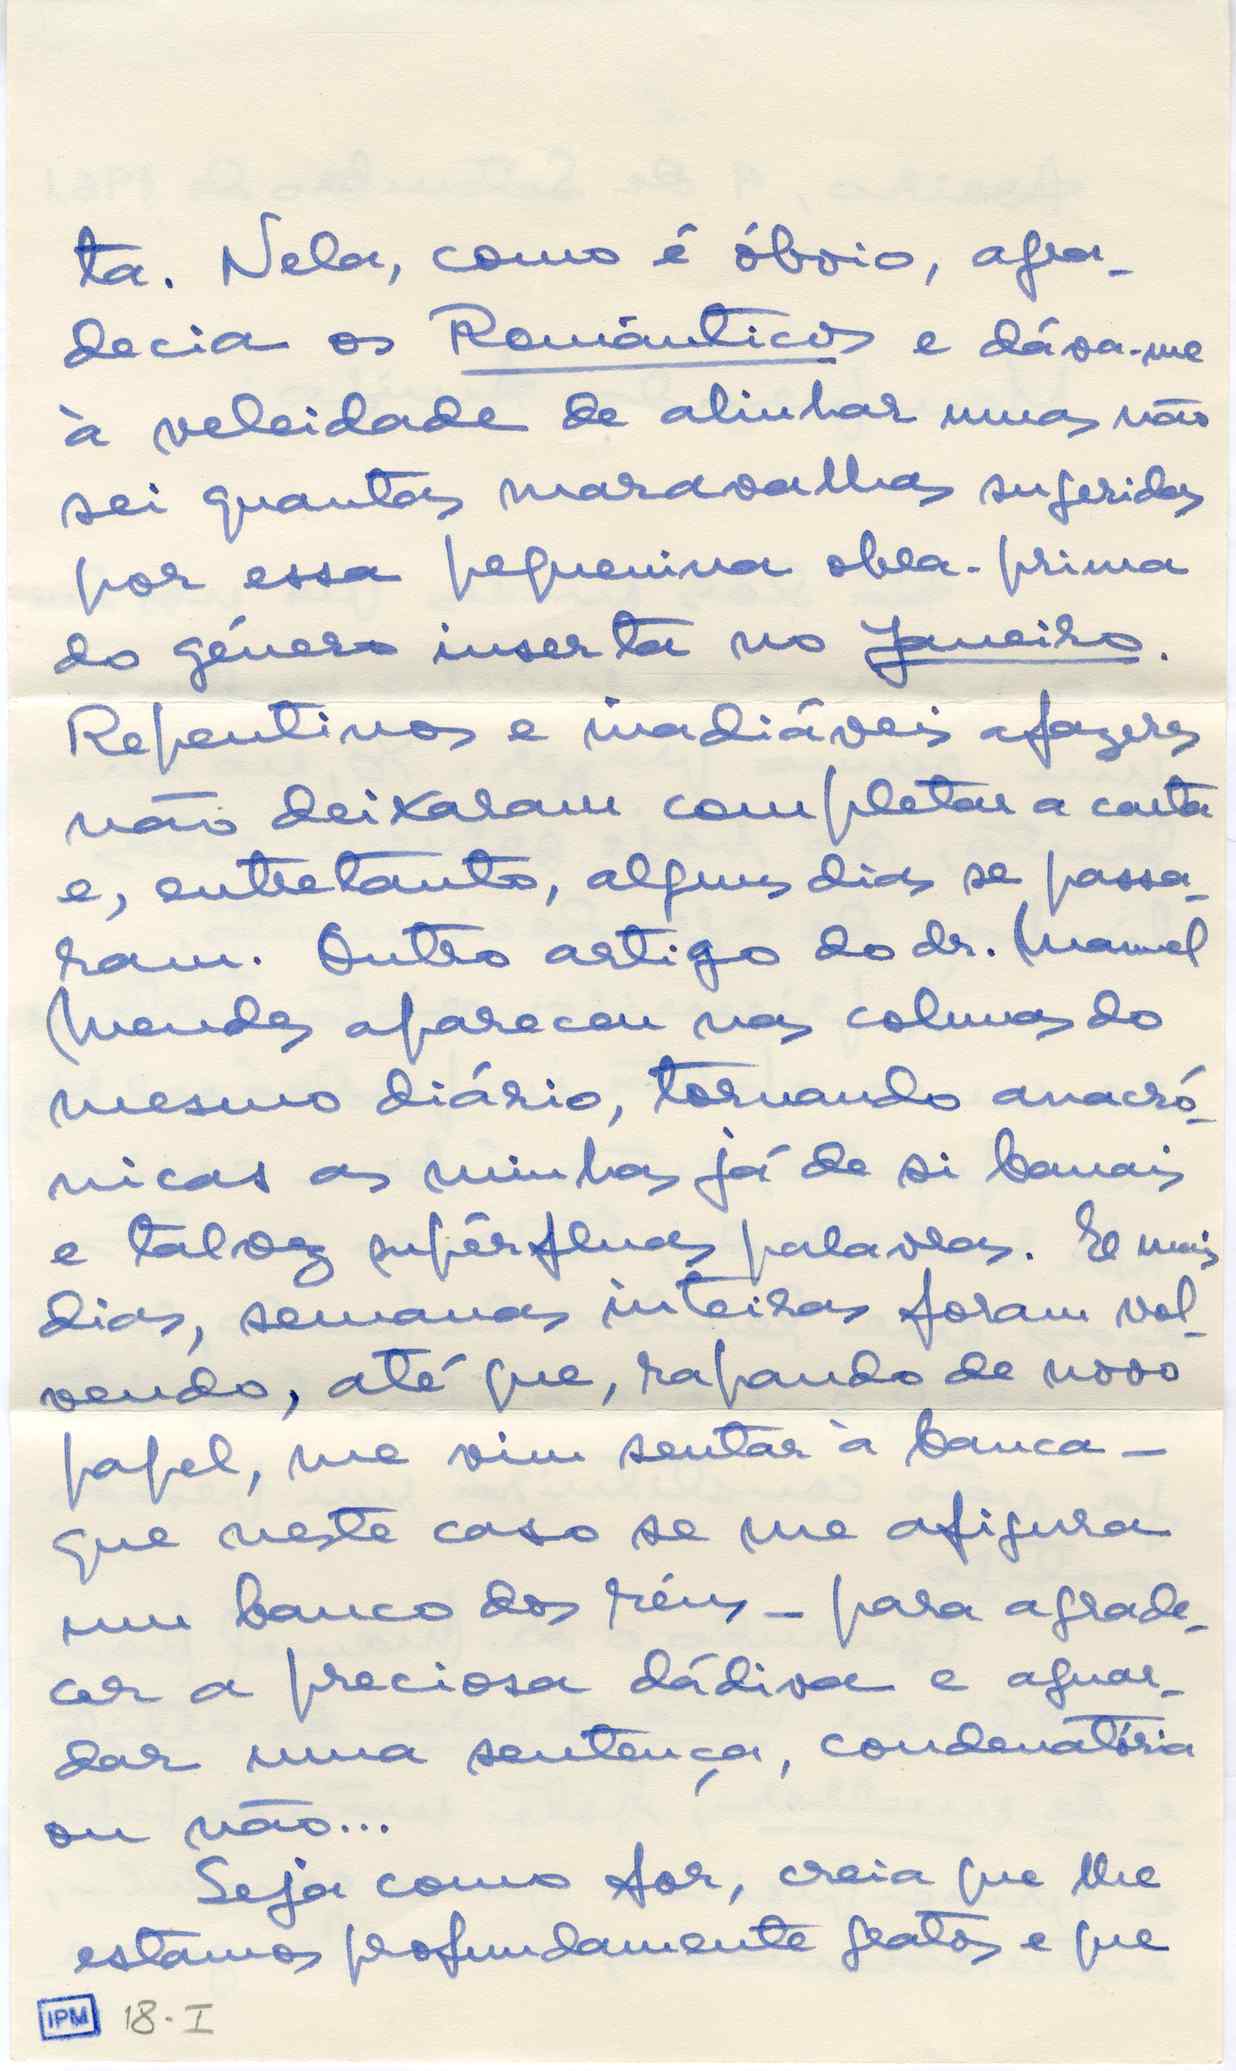 ta. Nela, como é óbvio, agra-
decia os Românticos e dáva-me
à veleidade de alinhar umas não
sei quantas maravalhas sugeridas
por essa pequenina obra-prima
do género inserta no Janeiro.
Repentinos e inadiáveis afazeres
não deixaram completar a carta
e, entretanto, alguns dias se passa-
ram. Outro artigo do dr. Manuel
Mendes apareceu nas colunas do
mesmo diário, tornando anacró-
nicas as minhas já de si banais
e talvez supérfluas palavras. E mais
dias, semanas inteiras foram vol-
vendo, até que, rapando de novo
papel, me vim sentar à banca -
que neste caso se me afigura
um banco dos réus - para agrade-
cer a preciosa dádiva e aguar-
dar uma sentença, condenatória
ou não...
Seja como for, creia que lhe
estamos profundamente gratos e que
IPM 18-I